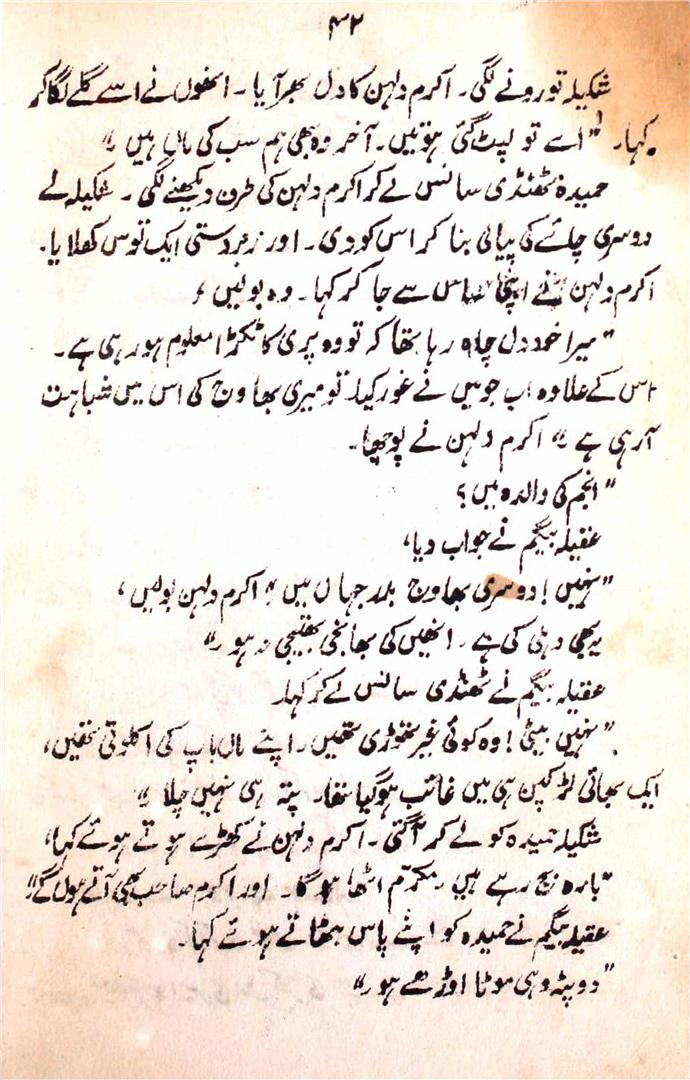 ۴۲
شکیلہ تو رونے لگی۔ اکرم دلہن کا دل بھر آیا۔ انھوں نے اسے گلے لگا کر
کہا۔ "اسے تو لپٹ گئی ہوتیں۔ آخر وہ بھی ہم سب کی ماں ہیں"
حمیدہ ٹھنڈی سانس لے کر اکرم دلہن کی طرف دیکھنے لگی۔ شکیلہ نے
دوسری چائے کی پیالی بنا کر اس کو دی۔ اور زبردستی ایک توس کھلایا۔
اکرم دلہن نے اپنی ساس سے جا کر کہا۔ وہ بولیں،
"میرا خود دل چاہ رہا تھا کہ تو وہ پری کا ٹکڑا معلوم ہو رہی ہے۔
اس کے علاوہ اب جو میں نے غور کیا۔ تو میری بھاوج کی اس میں شباہت
آرہی ہے" اکرم دلہن نے پوچھا۔
"انجم کی والدہ میں؟
عقیلہ بیگم نے جواب دیا،
"نہیں! دوسری بھاوج بدر جہاں میں" اکرم دلہن بولیں،
یہ بھی دہلی کی ہے۔ انھیں کی بھانجی بھتیجی نہ ہو۔"
عقیلہ بیگم نے ٹھنڈی سانس لے کر کہا۔
"نہیں بیٹی! وہ کوئی غیر تھوڑی تھیں۔ اپنے ماں باپ کی اکلوتی تھیں،
ایک بھائی لڑکپن ہی میں غائب ہو گیا تھا۔ پتہ ہی نہیں چلا"
شکیلہ حمیدہ کو لے کر آگئی۔ اکرم دلہن نے کھڑے ہوتے ہوئے کہا،
"بارہ بج رہے ہیں۔ مکرم اٹھا ہوگا۔ اور اکرم صاحب بھی آتے ہوں گے"
عقیلہ بیگم نے حمیدہ کو اپنے پاس بٹھاتے ہوئے کہا۔
"دوپٹہ وہی موٹا اوڑھے ہو۔"